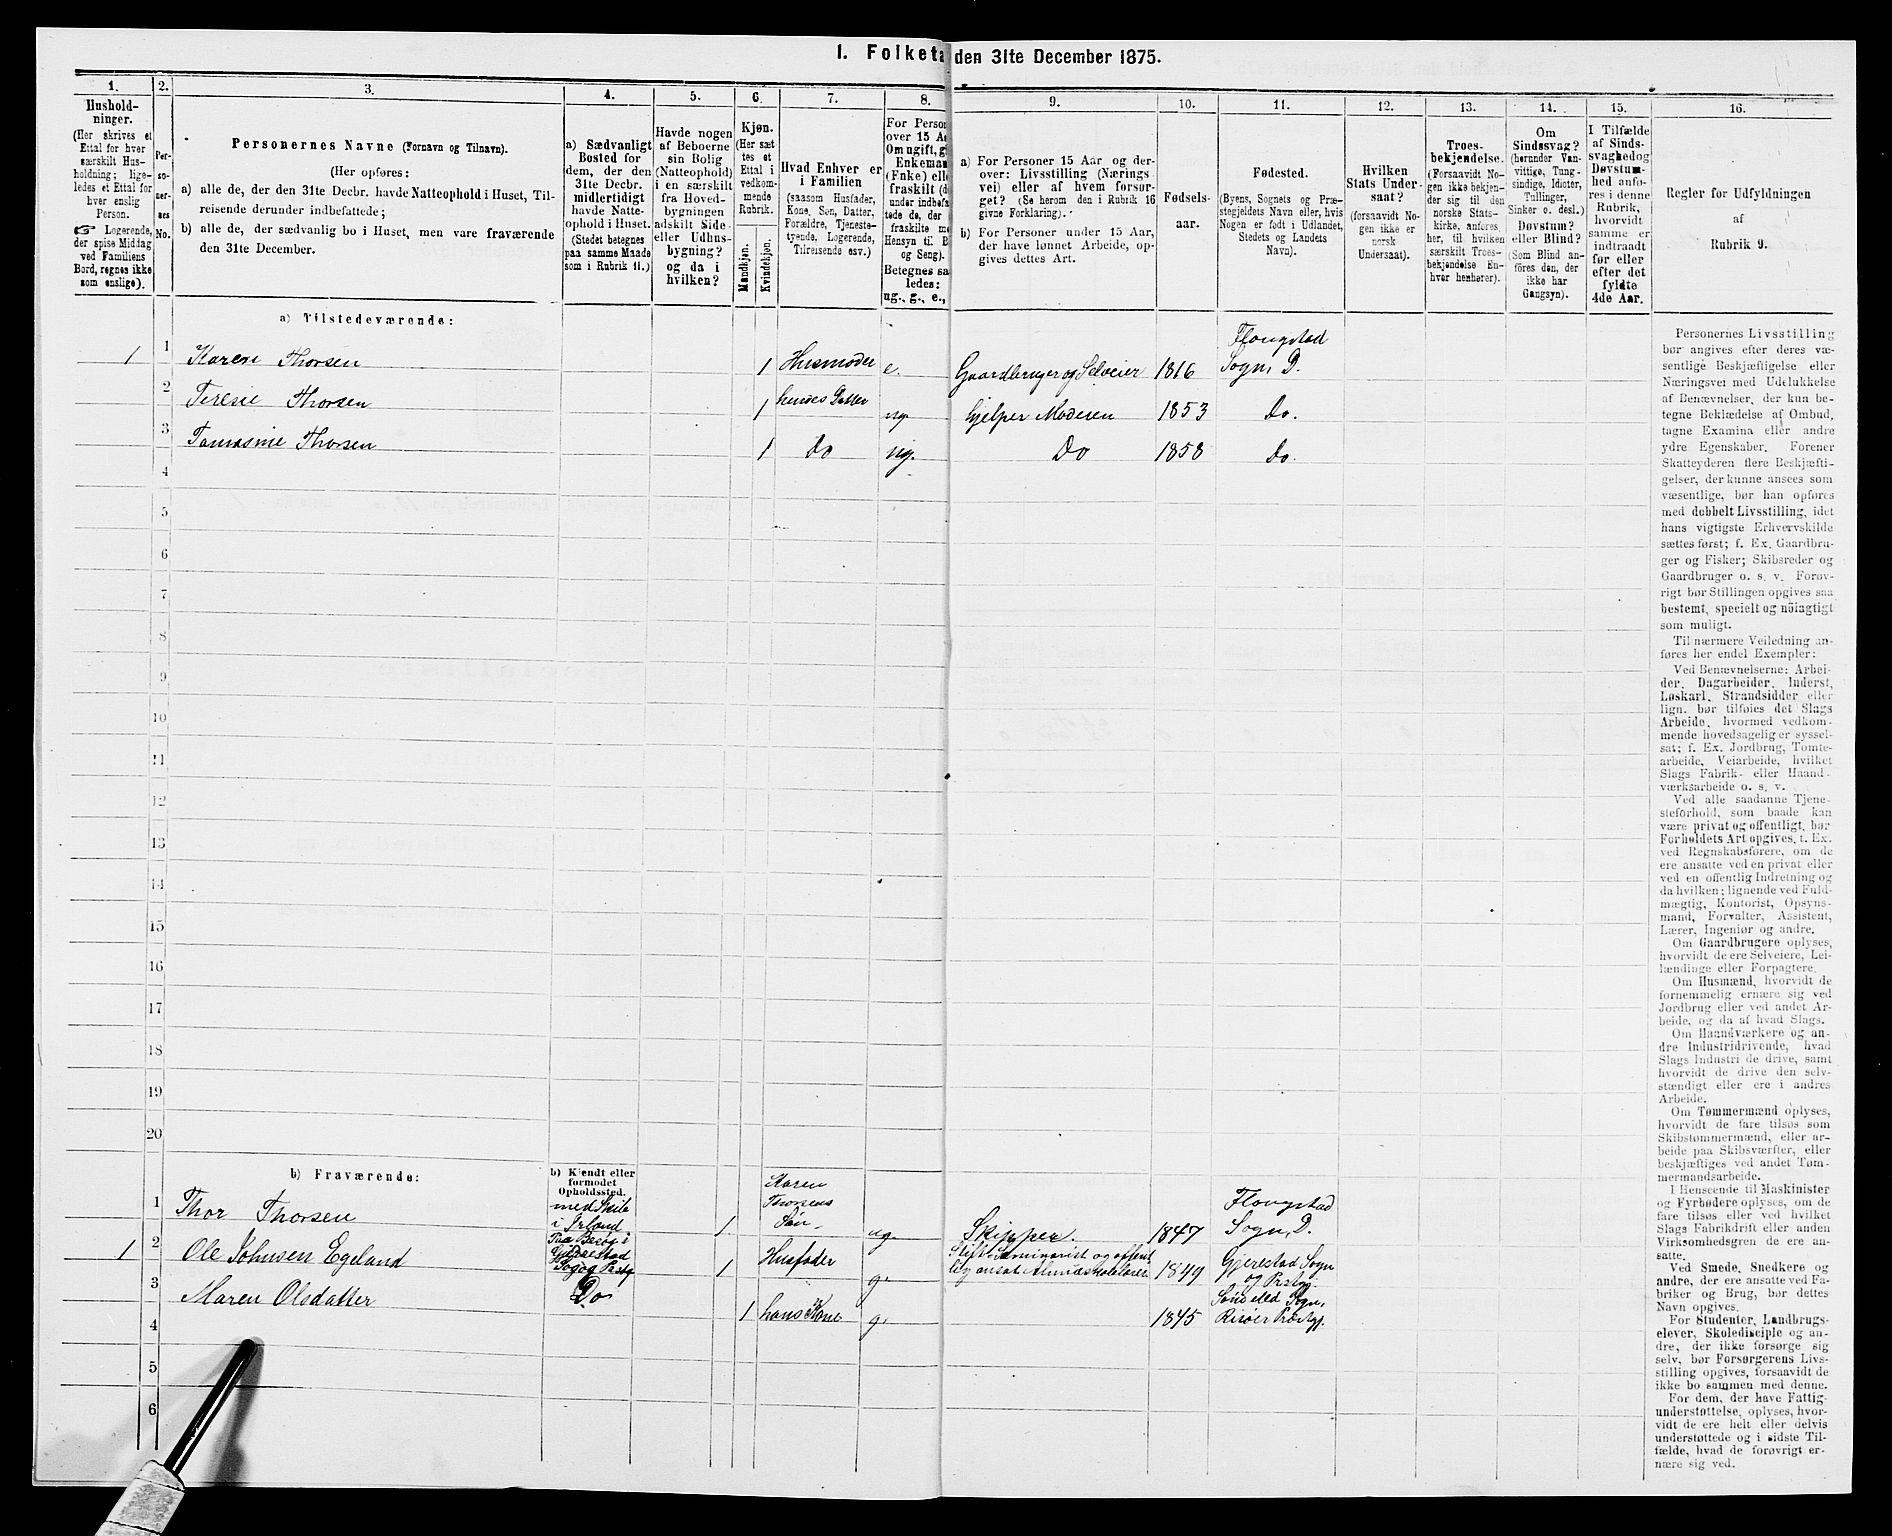 I. Folketæ den 31te December 1875.
1. 2. 3. 4. 5. 6. 7. 8. 9. 10. 11. 12. 13. 14. 15. 16.
Hushold-
ninger.
(Her skrives et
Ettal for hver
særskilt Hus-
holdning; lige-
ledes et Ettal for
hver enslig
Person.
Logerende,
der spise Middag
ved Familiens
Bord, regnes ikke
som enslige).
Per-
so-
ner-
nes
No.
Personernes Navne (Fornavn og Tilnavn).
(Her opføres:
a) alle de, der den 31te Decbr. havde Natteophold i Huset, Til-
reisende derunder indbefattede;
b) alle de, der sædvanlig bo i Huset, men vare fraværende
den 31te December.
a) Sædvanligt
Bosted for
dem, der den
31te Decbr.
midlertidigt
havde Natte-
ophold i Huset.
(Stedet betegnes
paa samme Maade
som i Rubrik 11.)
Havde nogen
af Beboerne
sin Bolig
(Natteophold)
i en særskilt
fra Hoved-
bygningen
adskilt Side-
eller Udhus-
bygning?
og da i
hvilken?
Kjøn.
(Her sæt-
tes et
Ettal i
vedkom-
mende
Rubrik.
Mandkjøn.
Kvindekjøn.
Hvad Enhver er
i Familien
(saasom Husfader,
Kone, Søn, Datter,
Forældre, Tjeneste-
tyende, Logerende,
Tilreisende osv.)
For Person
over 15 A
Om ugift, g
Enkema
(Enke) elle
fraskilt (d
under indbefa
tede de, der
fraskilte m
Hensyn til B
og Seng).
Betegnes sa
ledes:
ug., g., e.,
a) For Personer 15 Aar og der-
over: Livsstilling (Nærings
vei) eller af hvem forsør-
get? (Se herom den i Rubrik 16
givne Forklaring).
b) For Personer under 15 Aar,
der have lønnet Arbeide, op-
gives dettes Art.
Fødsels-
aar.
Fødested.
(Byens, Sognets og Præ-
stegjeldets Navn eller, hvis
Nogen er født i Udlandet,
Stedets og Landets
Navn).
Hvilken
Stats Under-
saat?
(forsaavidt No-
gen ikke er
norsk
Undersaat).
Troes-
bekjendelse.
(Forsaavidt No-
gen ikke bekjen-
der sig til den
norske Stats-
kirke, anføres
her, til hvilken
særskilt Troes-
bekjendelse En-
hver henhører).
Om
Sindssvag?
(herunder Van-
vittige, Tung-
sindige, Idioter,
Tullinger,
Sinker o. desl.)
Døvstum?
eller Blind?
(Som Blind an-
føres den, der
ikke har
Gangsyn).
I Tilfælde
af Sinds-
svaghed og
Døvstum-
hed anfø-
res i denne
Rubrik,
hvorvidt
samme er
indtraadt
før eller
efter det
fyldte
4de Aar.
Regler for Udfyldningen
af
Rubrik 9.
a) Tilstedeværende:
1 1 Karen Thorsen 1 Husmoder e. Gaardbruger og Selveier 1816 Flougstad
Sogn, D.
2 Teresie Thorsen 1 hendes Datter ug. hjelper Moderen 1853 Do.
3 Tomasine Thorsen 1 Do ug. Do 1858 Do.
4
5
6
7
8
9
10
11
12
13
14
15
16
17
18
19
20
b) Fraværende:
b) Kjendt eller
formodet
Opholdssted.
1 Thor Thorsen med Skib
i Irland 1 Karen
Thorsens
Søn ug. Skipper. 1847 Flougstad
Sogn, D.
1 2 Ole Johnsen Egeland Paa Besøg i
Gjerestad
Sogn og Prstg 1 Husfader g. Stift Seminarist og offent
lig ansat Almueskolelærer 1849 Gjerestad Sogn
og Prstgj.
3 Maren Olsdatter Do 1 hans Kone g. 1845 Søndeled Sogn,
Risøer Præstgj.
4
5
6
Personernes Livsstilling
bør angives efter deres væ-
sentlige Beskjæftigelse eller
Næringsvei med Udelukkelse
af Benævnelser, der kun be-
tegne Beklædelse af Ombud,
tagne Examina eller andre
ydre Egenskaber. Forener
Skatteyderen flere Beskjæfti-
gelser, der kunne ansees som
væsentlige, bør han opføres
med dobbelt Livsstilling, idet
hans vigtigste Erhvervskilde
sættes først; f. Ex. Gaardbru-
ger og Fisker; Skibsreder og
Gaardbruger o. s. v. Forøv-
rigt bør Stillingen opgives saa
bestemt, specielt og nöiagtigt
som muligt.
Til nærmere Veiledning an-
føres her endel Exempler:
Ved Benævnelserne: Arbei-
der, Dagarbeider, Inderst,
Løskarl, Strandsidder eller
lign. bør tilføies det Slags
Arbeide, hvormed vedkom-
mende hovedsagelig er syssel-
sat; f. Ex. Jordbrug, Tomte-
arbeide, Veiarbeide, hvilket
Slags Fabrik- eller Haand-
værksarbeide o. s. v.
Ved alle saadanne Tjene-
steforhold, som baade kan
være privat og offentligt, bør
Forholdets Art opgives, t. Ex.
ved Regnskabsførere, om de
ere ansatte ved en privat eller
ved en offentlig Indretning og
da hvilken; lignende ved Fuld-
mægtig, Kontorist, Opsyns-
mand, Forvalter, Assistent,
Lærer, Ingeniør og andre.
Om Gaardbrugere oplyses,
hvorvidt de ere Selveiere, Lei-
lændinge eller Forpagtere.
Om Husmænd, hvorvidt de
fornemmelig ernære sig ved
Jordbrug eller ved andet Ar-
beide, og da af hvad Slags.
Om Haandværkere og an-
dre Industridrivende, hvad
Slags Industri de drive, samt
hvorvidt de drive den selv-
stændigt eller ere i andres
Arbeide.
Om Tømmermænd oplyses,
hvorvidt de fare tilsøs som
Skibstømmermænd, eller ar-
beide paa Skibsværfter, eller
beskjæftiges ved andet Tøm-
mermandsarbeide.
I Henseende til Maskinister
og Fyrbødere oplyses, om de
fare tilsøs eller ved hvilket
Slags Fabrikdrift eller anden
Virksomhedsgren de ere an-
satte.
Ved Smede, Snedkere og
andre, der ere ansatte ved Fa-
briker og Brug, bør dettes
Navn opgives.
For Studenter, Landbrugs-
elever, Skoledisciple og an-
dre, der ikke forsørge sig
selv, bør Forsørgerens Livs-
stilling opgives, forsaavidt de
ikke bo sammen med denne.
For dem, der have Fattig-
understøttelse, oplyses, hvor-
vidt de ere helt eller delvis
understøttede og i sidste Til-
fælde, hvad de forøvrigt er-
nære sig ved.